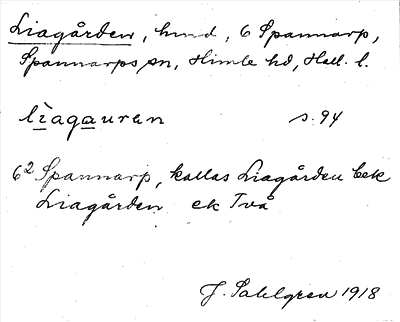 Liagården, hmd, 6 Spannarp,
Spannarps sn, Himle hd, Hall. l.
lìagauran s. 94
6² Spannarp, kallas Liagården bek
Liagården ek Två
J. Sahlgren 1918